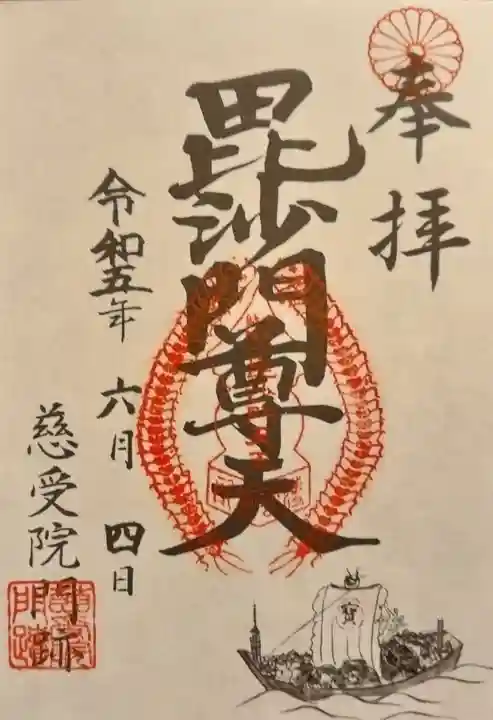 奉拝
毘沙門尊天
令和五年 六月 四日
慈受院門跡
寳